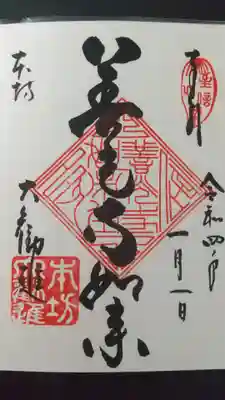 奉拝
令和四年
一月一日
善光寺如来
本坊
大勧進
本坊
大勧進